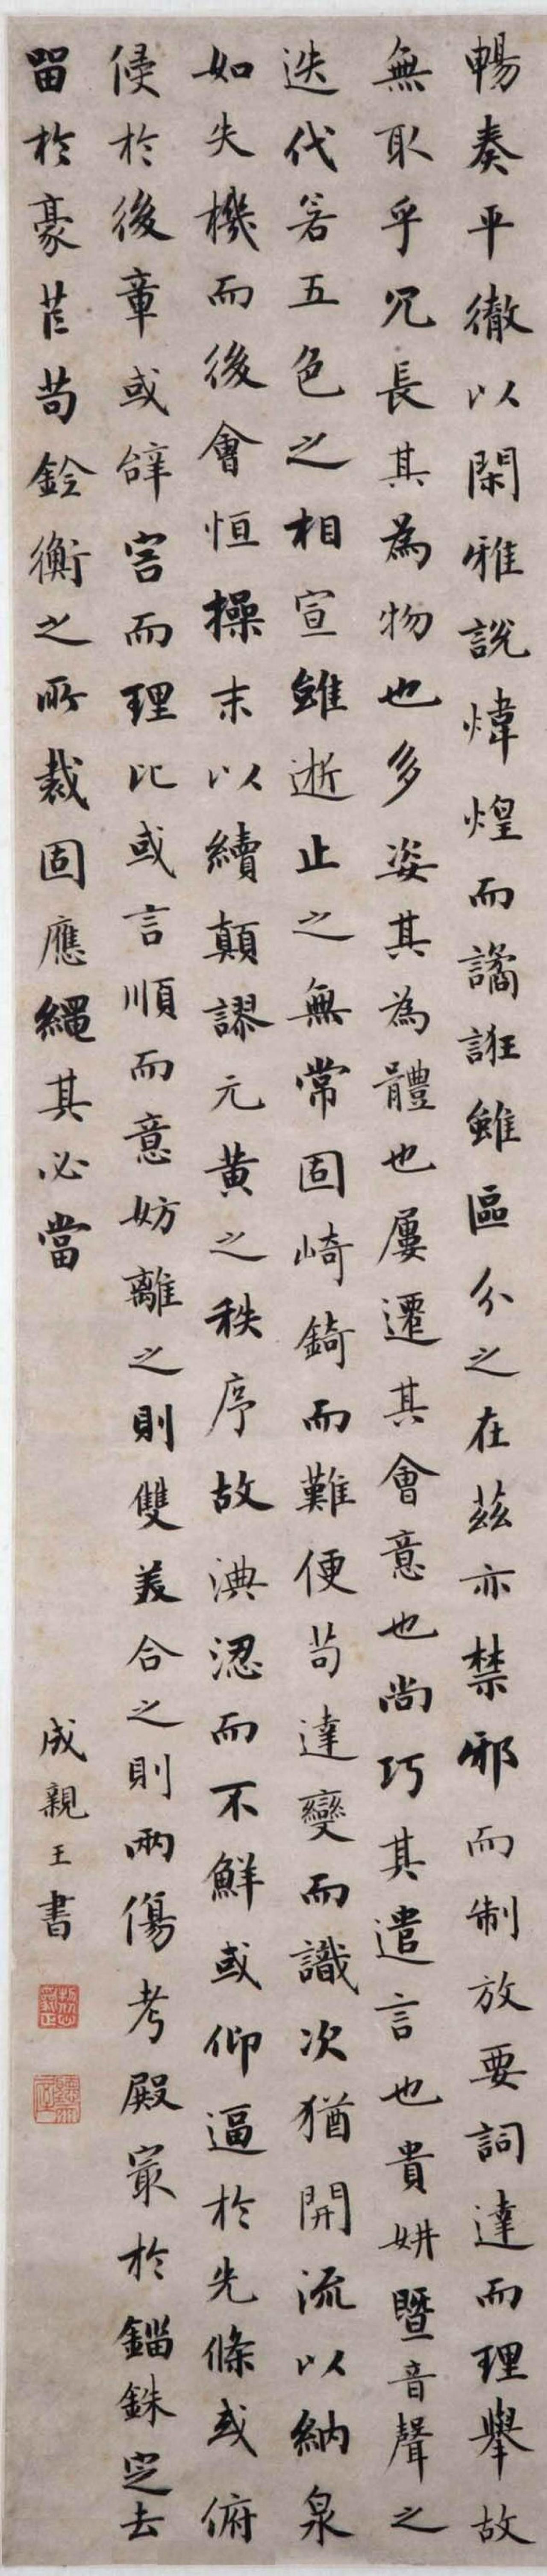 暢奏平徹以閑雅說煒煌而譎誑雖區分之在茲亦禁邪而制放要詞達而理舉故
無取乎冗長其為物也多姿其為體也屢遷其會意也尚巧其遣言也貴妍暨音聲之
迭代若五色之相宣雖逝止之無常固崎錡而難便苟達變而識次猶開流以納泉
如失機而後會恒操末以續顛謬元黃之秩序故淟涊而不鮮或仰逼於先條或俯
侵於後章或辝害而理比或言順而意妨離之則雙美合之則兩傷考殿冣於錙銖定去
留於豪芒苟銓衡之所裁固應繩其必當
成親王書